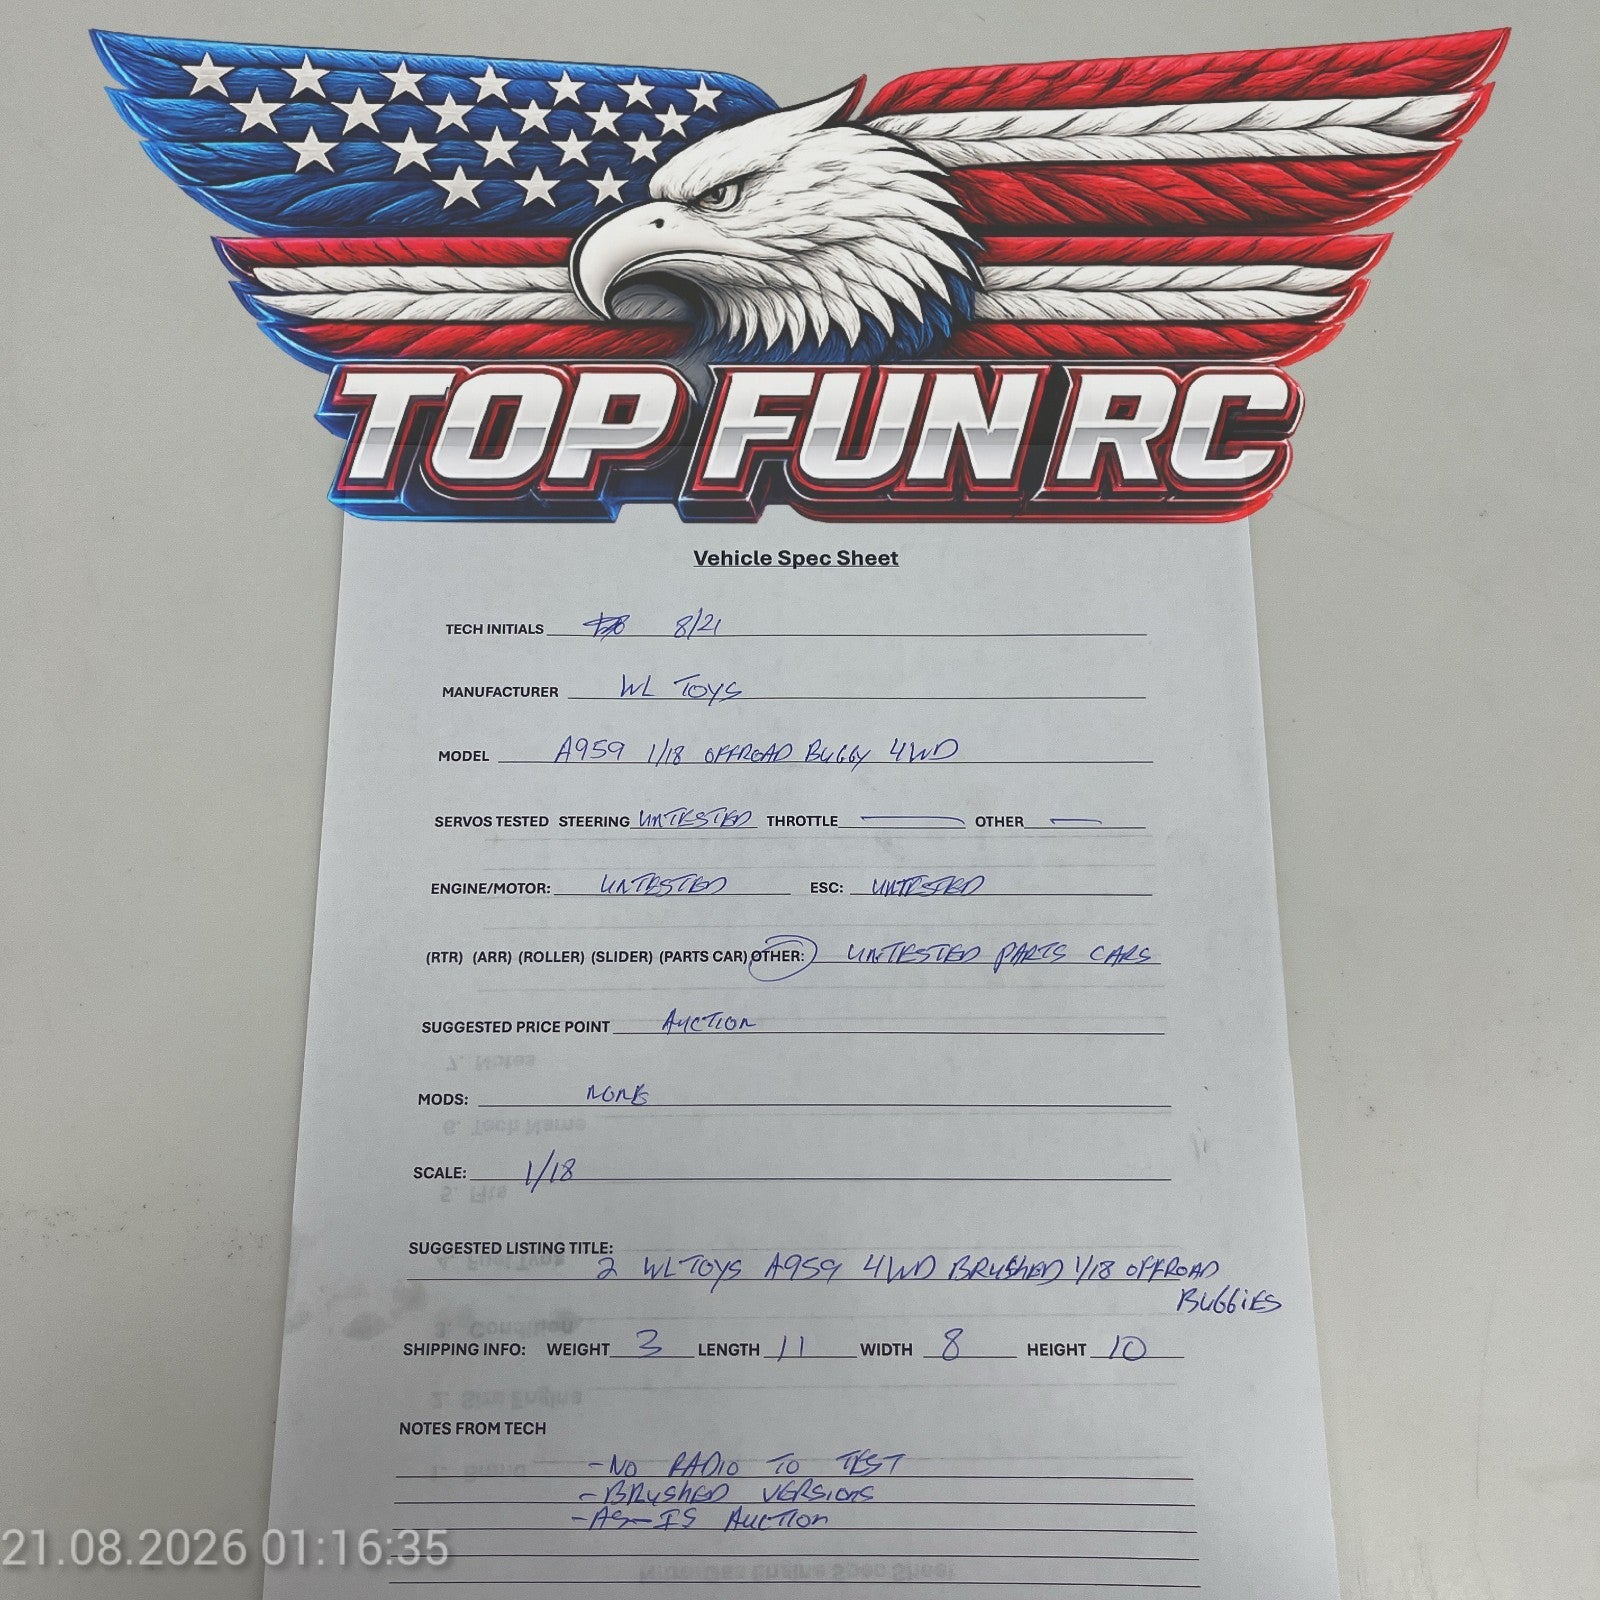 TOP FUN RC
Vehicle Spec Sheet
TECH INITIALS 8/21
MANUFACTURER WL TOYS
MODEL A959 1/18 OFFROAD BUGGY 4WD
SERVOS TESTED STEERING UNTESTED THROTTLE — OTHER —
ENGINE/MOTOR: UNTESTED ESC: UNTESTED
(RTR) (ARR) (ROLLER) (SLIDER) (PARTS CAR) OTHER: UNTESTED PARTS CARS
SUGGESTED PRICE POINT AUCTION
7. Notes
MODS: NONE
6. Tech Name
SCALE: 1/18
5. Fits
SUGGESTED LISTING TITLE:
4. Fuel Type
2 WLTOYS A959 4WD BRUSHED 1/18 OFFROAD
BUGGIES
3. Condition
SHIPPING INFO: WEIGHT 3 LENGTH 11 WIDTH 8 HEIGHT 10
2. Size Engine
NOTES FROM TECH
1. Brand
-NO RADIO TO TEST
-BRUSHED VERSIONS
-AS-IS AUCTION
21.08.2026 01:16:35
Engine Spec Sheet